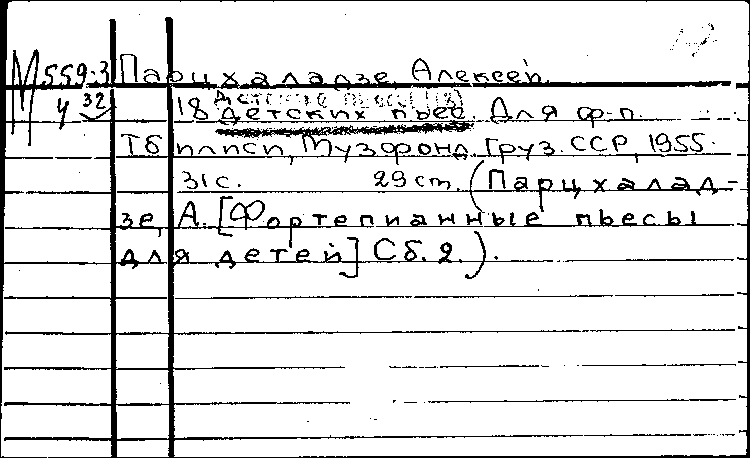 М 559:3 Парцхаладзе, Алексей.
Детские пьесы (18)
Ч 32 18 детских пьес. Для ф-п.
Тбилиси, Музфонд Груз. ССР, 1955.
31 с. 29 cm. (Парцхалад-
зе, А. [Фортепианные пьесы
для детей] Сб. 2.).